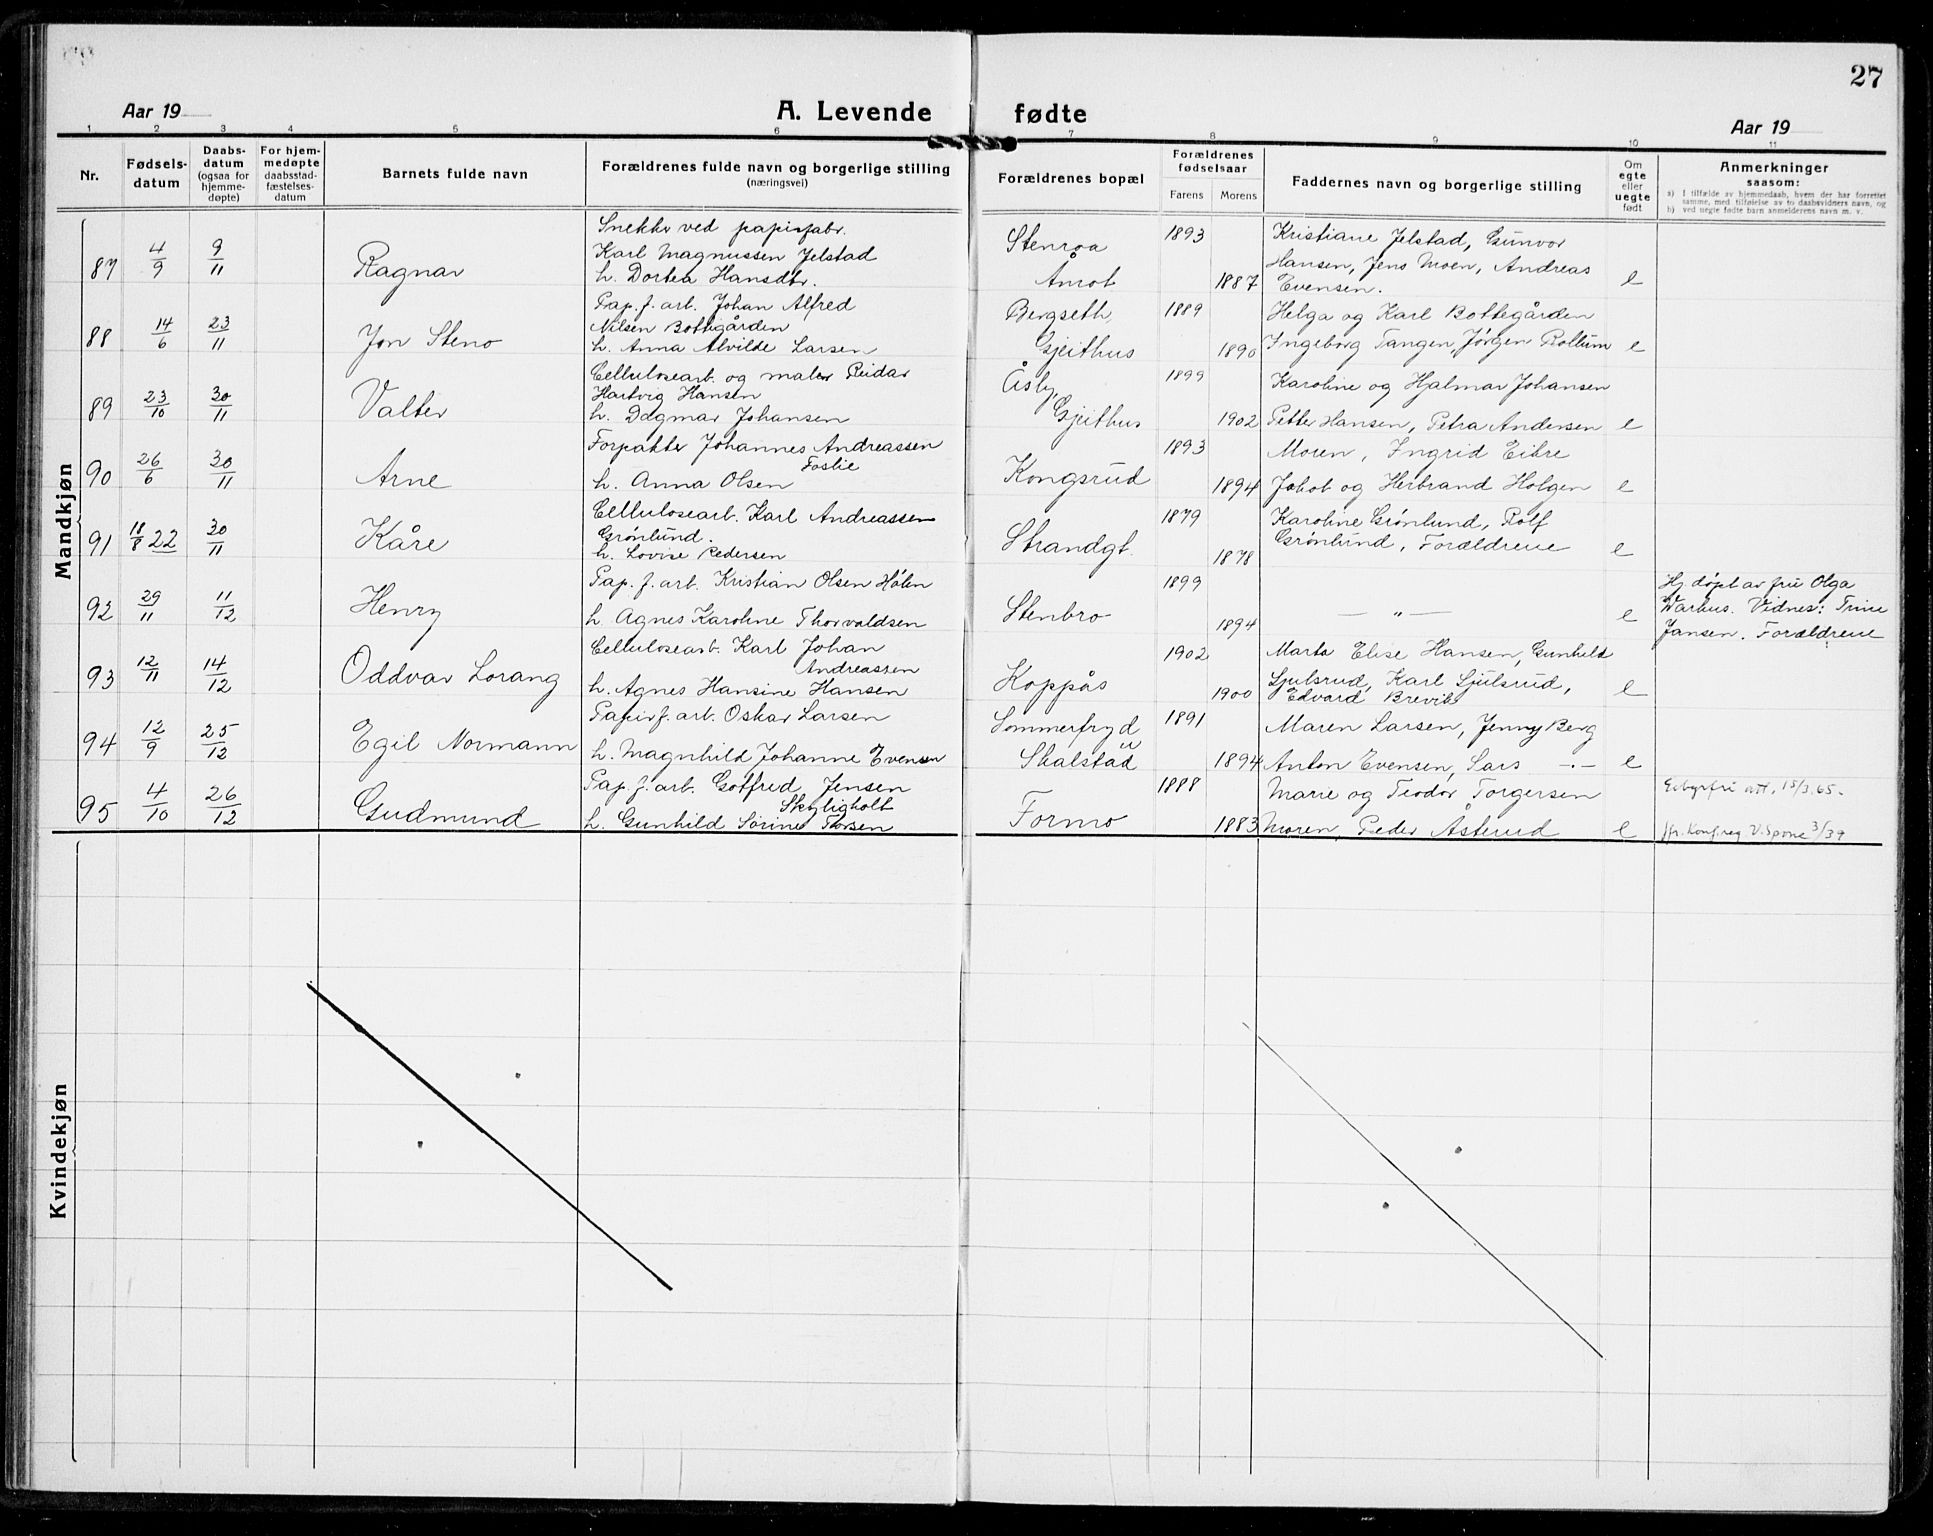 27
Aar 19
A. Levende
fødte
Aar 19
1 2 3 4 5 6 7 8 9 10 11
Nr.
Fødsels-
datum
Daabs-
datum
(ogsaa for
hjemme-
døpte)
For hjem-
medøpte
daabsstad-
fæstelses-
datum
Barnets fulde navn
Forældrenes fulde navn og borgerlige stilling
(næringsvei)
Forældrenes bopæl
Forældrenes
fødselsaar
Farens Morens
Faddernes navn og borgerlige stilling
Om
egte
eller
uegte
født
Anmerkninger
saasom:
a) I tilfælde av hjemmedaab, hvem der har forrettet
samme, med tilføielse av to daabsvidners navn, og
b) ved uegte fødte barn anmelderens navn m. v.
Mandkjøn
Snekker ved papirfabr.
87 4/9 9/11 Ragnar Karl Magnussen Jelstad Stenroa 1893 Kristiane Jelstad, Gunvor
h. Dortea Hansdtr. Åmot 1887 Hansen, Jens Moen, Andreas
Evensen. e
Pap. f. arb. Johan Alfred Bergseth, 1889 Helga og Karl Bottegården
88 14/6 23/11 Jon Steno Nilsen Bottegården
h. Anna Alvilde Larsen Gjeithus 1890 Ingeborg Tangen, Jørgen Rollum e
Cellulosearb. og maler Reidar Åsly, 1899 Karoline og Hjalmar Johansen
89 23/10 30/11 Valter Hartvig Hansen
h. Dagmar Johansen Gjeithus 1902 Petter Hansen, Petra Andersen e
Forpakter Johannes Andreassen 1893 Moren, Ingrid Eikre
Foslie
90 26/6 30/11 Arne h. Anna Olsen Kongsrud 1894 Jakob og Herbrand Holgen e
Cellulosearb. Karl Andreassen 1879 Karoline Grønlund, Rolf
91 18/8 22 30/11 Kåre Grønlund. Strandgt. Grønlund, Forældrene
h. Lovise Pedersen 1878 e
Pap. f. arb. Kristian Olsen Hølen 1899 Hj. døpt av fru Olga
92 29/11 11/12 Henry h. Agnes Karoline Thorvaldsen Stenbro 1894 — „ — e Aarhus. Vidnes: Trine
Jansen. Forældrene
Cellulosearb. Karl Johan 1902 Marta Elise Hansen, Gunhild
Andreassen
93 12/11 14/12 Oddvar Lorang h. Agnes Hansine Hansen Koppås 1900 Sjulsrud, Karl Sjulsrud,
Edvard Brevik e
Papirf. arb. Oskar Larsen Sommerfryd 1891 Maren Larsen, Jenny Berg
94 12/9 25/12 Egil Normann h. Magnhild Johanne Evensen Skalstad 1894 Anton Evensen, Lars —„— e
Pap. f. arb. Gotfred Jensen 1888 Marie og Teodor Torgersen att. 15/3.65.
95 4/10 26/12 Gudmund h. Gunhild Sørine Thorsen Formo 1883 Moren, Peder Åsterud e jfr. Konf.reg V. Spone 3/39
Kvindekjøn